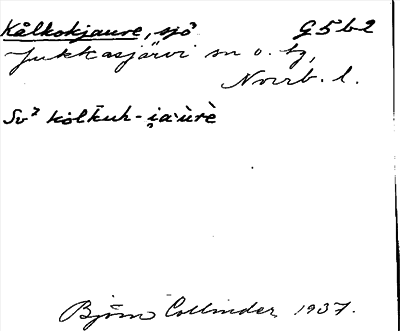 Kålkokjaure, sjö G5b2
Jukkasjärvi sn o. tg,
Norrb. l.
Sv² kålkuh-i̯a·ùrè
Björn Collinder 1937.